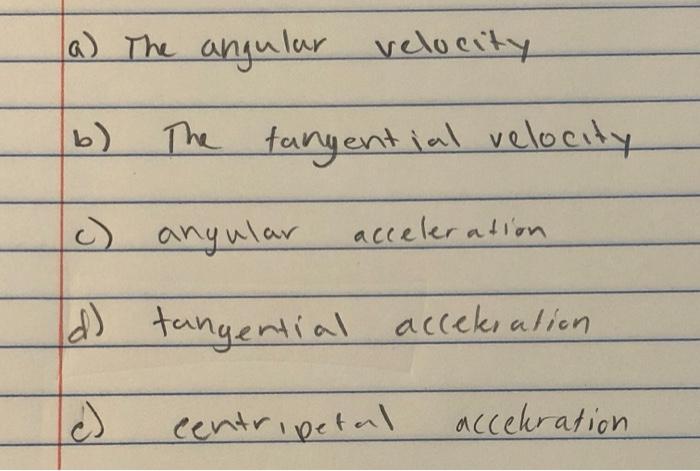 a) The angular velocity
b) The tangential velocity
c) angular acceleration
d) tangential acceleration
e) centripetal acceleration